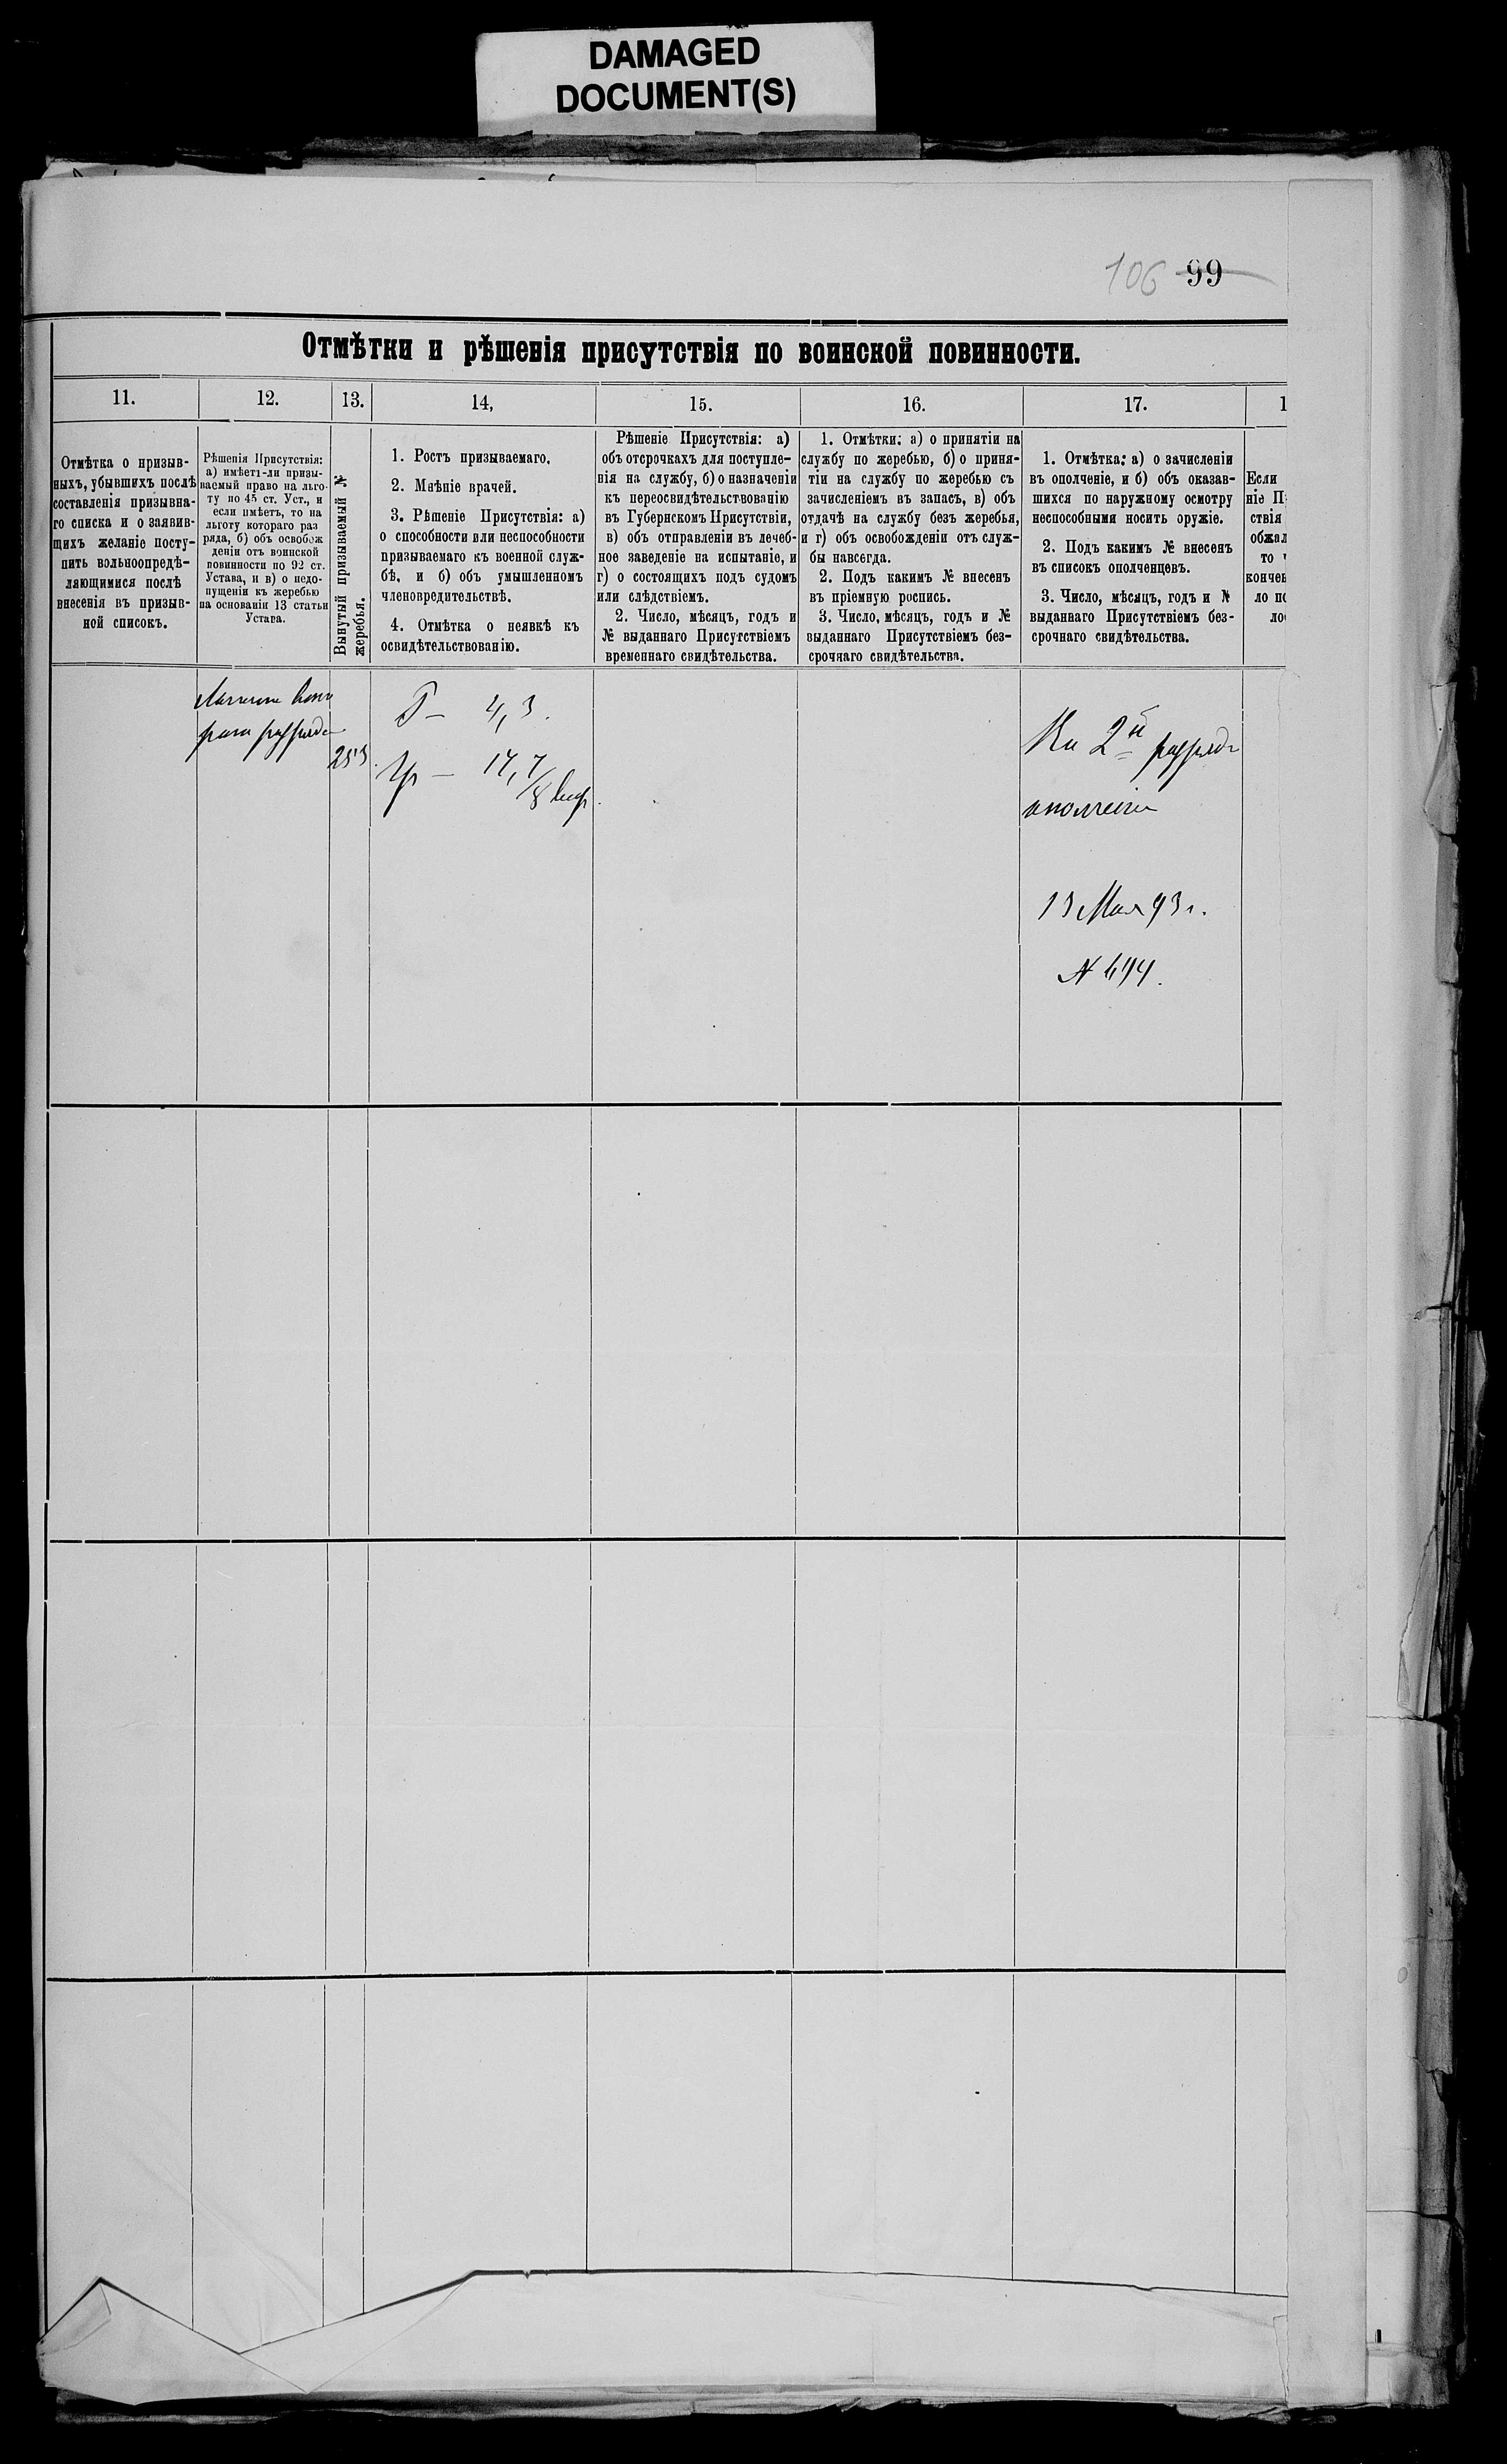 DAMAGED
DOCUMENT(S)
106 99
Отмѣтки и рѣшенія присутствія по воинской повинности.
11.
12.
13.
14,
15.
16.
17.
1
Отмѣтка о призыв-
ныхъ, убывшихъ послѣ
составленія призывна-
го списка и о заявив-
щихъ желаніе посту-
пить вольноопредѣ-
ляющимися послѣ
внесенія въ призыв-
ной список.
Рѣшенія Присутствія:
а) имѣетъ-ли призы-
ваемый право на льго-
ту по 45 ст. Уст., и
если имѣетъ, то на
льготу котораго раз
ряда, б) объ освобож
деніи отъ воинской
повинности по 92 ст.
Устава, и в) о недо-
пущеніи къ жеребью
на основаніи 13 статьи
Устава.
Вынутый призываемый №
жеребья.
1. Ростъ призываемаго.
2. Мнѣніе врачей.
3. Рѣшеніе Присутствія: а)
о способности или неспособности
призываемаго къ военной служ-
бѣ, и б) объ умышленномъ
членовредительствѣ.
4. Отмѣтка о неявкѣ къ
освидѣтельствованію.
Рѣшеніе Присутствія: а)
объ отсрочкахъ для поступле-
нія на службу, б) о назначеніи
къ переосвидѣтельствованію
въ Губернскомъ Присутствіи,
в) объ отправленіи въ лечеб-
ное заведеніе на испытаніе, и
г) о состоящихъ подъ судомъ
или слѣдствіемъ.
2. Число, мѣсяцъ, годъ и
№ выданнаго Присутствіемъ
временнаго свидѣтельства.
1. Отмѣтки: а) о принятіи на
службу по жеребью, б) о приня-
тіи на службу по жеребью съ
зачисленіемъ въ запасъ, в) объ
отдачѣ на службу безъ жеребья,
и г) объ освобожденіи отъ служ-
бы навсегда.
2. Подъ какимъ № внесенъ
въ пріемную роспись.
3. Число, мѣсяцъ, годъ и №
выданнаго Присутствіемъ без-
срочнаго свидѣтельства.
1. Отмѣтка: а) о зачисленіи
въ ополченіе, и б) объ оказав-
шихся по наружному осмотру
неспособными носить оружіе.
2. Подъ какимъ № внесенъ
въ списокъ ополченцевъ.
3. Число, мѣсяцъ, годъ и №
выданнаго Присутствіемъ без-
срочнаго свидѣтельства.
Если
ніе П
ствія
обжал
то
кончен
ло по
ло
разряда
253
Р — 4,3.
Гр — 17,7/8
Во 2й разрядъ
ополченія
13 Мая 93 г.
№ 694.